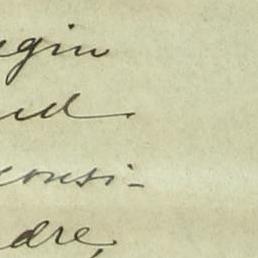 egin
ud
consi-
dre,